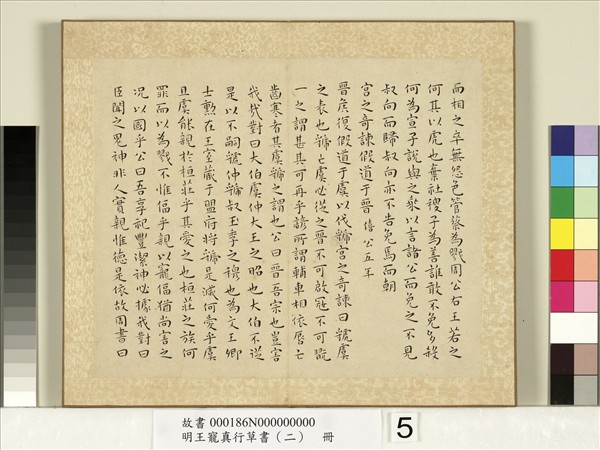 而相之卒無怨色管蔡為戮周公右王若之
何其以虎也棄社稷子為善誰敢不免多殺
何為宣子說與之乘以言諸公而免之不見
叔向而歸叔向亦不告免焉而朝
宮之奇諫假道于晉 僖公五年
晉侯復假道于虞以伐虢宮之奇諫曰虢虞
之表也虢亡虞必從之晉不可啟寇不可翫
一之謂甚其可再乎諺所謂輔車相依唇亡
齒寒者其虞虢之謂也公曰晉吾宗也豈害
我哉對曰大伯虞仲大王之昭也大伯不從
是以不嗣虢仲虢叔王季之穆也為文王卿
士勳在王室藏于盟府將虢是滅何愛乎虞
且虞能親於桓莊乎其愛之也桓莊之族何
罪而以為戮不惟偪乎親以寵偪猶尚害之
況以國乎公曰吾享祀豐潔神必據我對曰
臣聞之鬼神非人實親惟德是依故周書曰
故書 000186N000000000
明王寵真行草書（二） 冊
5